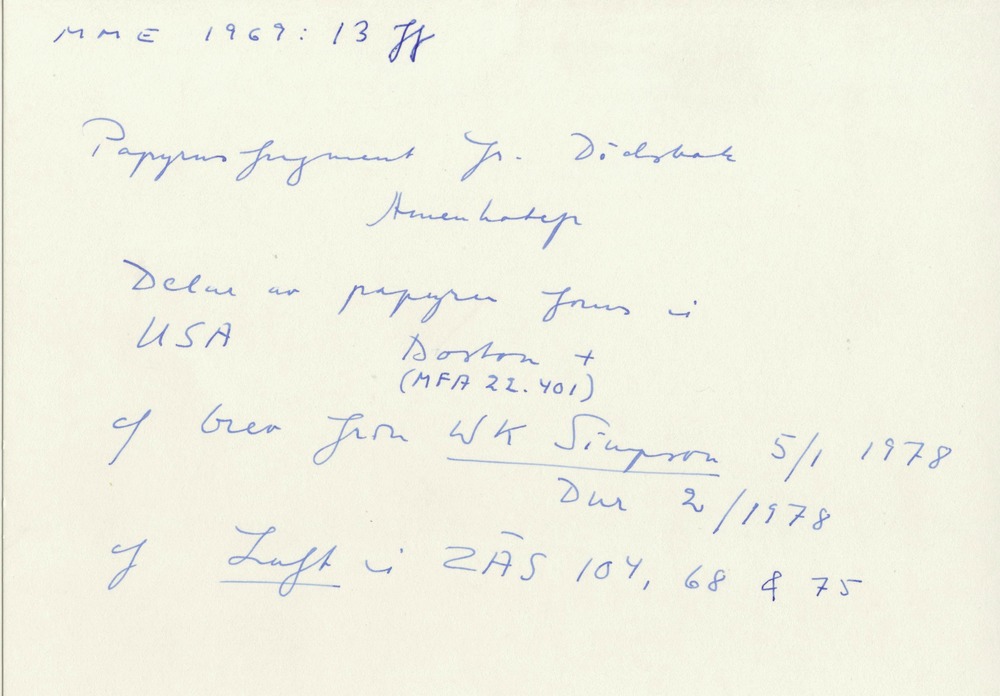 MME 1969: 13 ff
Papyrusfragment fr. Dödsbok
Amenhotep
Delar av papyren finns i
USA Boston +
(MFA 22.401)
cf brev från WK Simpson 5/1 1978
Dnr 2/1978
cf Luft i ZÄS 104, 68 & 75